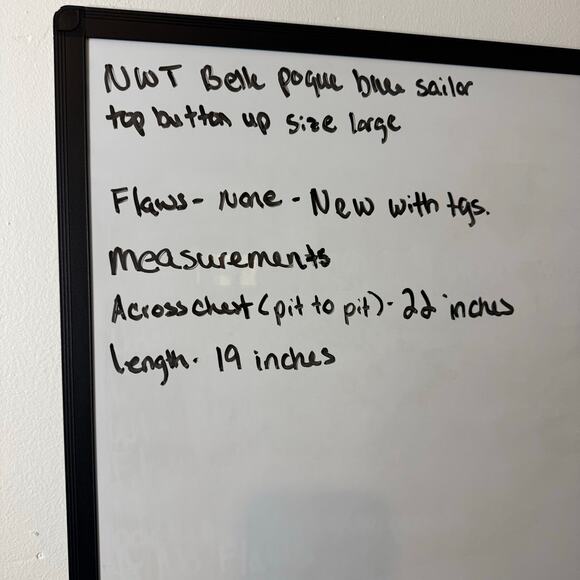 NWT Belle poque blue sailor
top button up size large
Flaws - None - New with tgs.
Measurements
Across chest (pit to pit) - 22 inches
Length - 19 inches